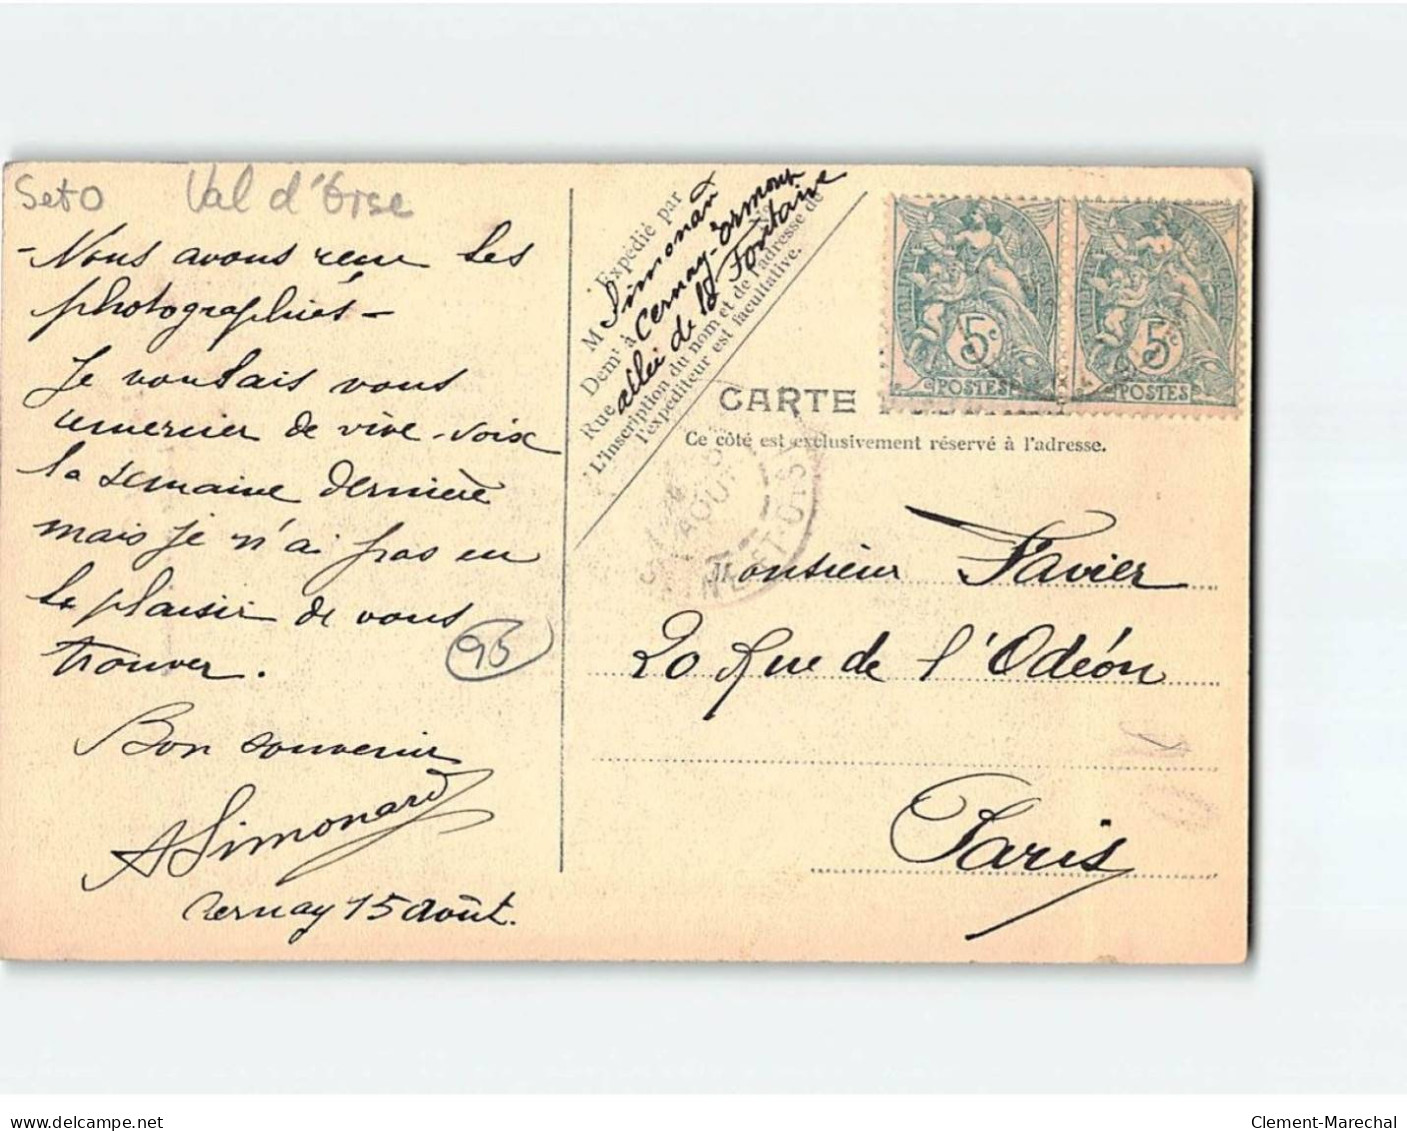 Set O Val d'Oise
- Nous avons reçu les
photographies -
Je voulais vous
remercier de vive-voix
la semaine dernière
mais je n'ai pas eu
le plaisir de vous
trouver.
95
Bon souvenir
A Simonard
Cernay 15 août.
Expédié par
M Simonard
Demt à Cernay-Ermont
Rue allée de la Fontaine
L'inscription du nom et de l'adresse de
l'expéditeur est facultative.
5c 5c
POSTES POSTES
CARTE
Ce côté est exclusivement réservé à l'adresse.
AOUT
ET-OISE
Monsieur Favier
20 Rue de l'Odéon
Paris
delcampe.net
Clement-Marechal